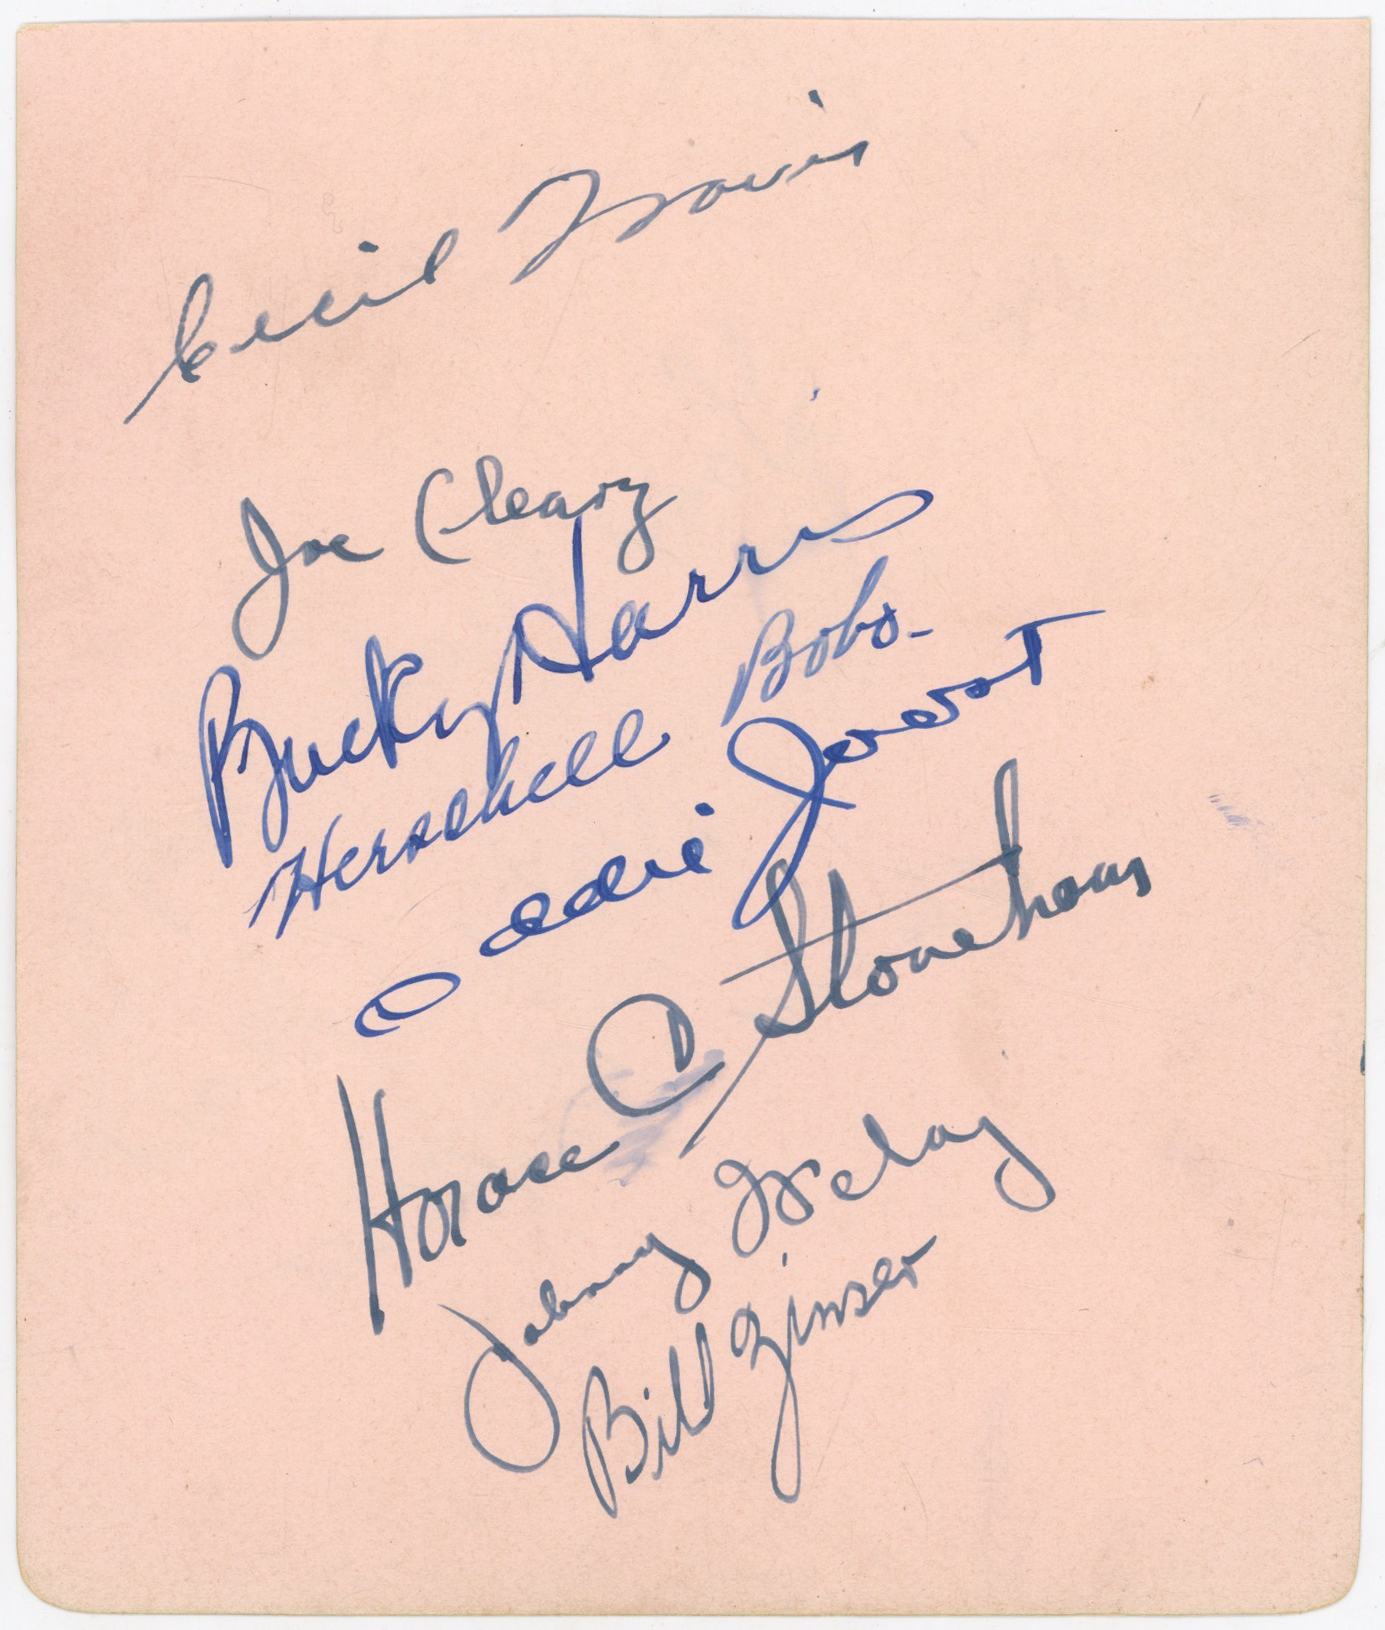 Cecil Travis
Joe Cleary
Bucky Harris
Herschell Bobo-
Eddie Joost
Horace C Stoneham
Johnny Welaj
Bill Zinser